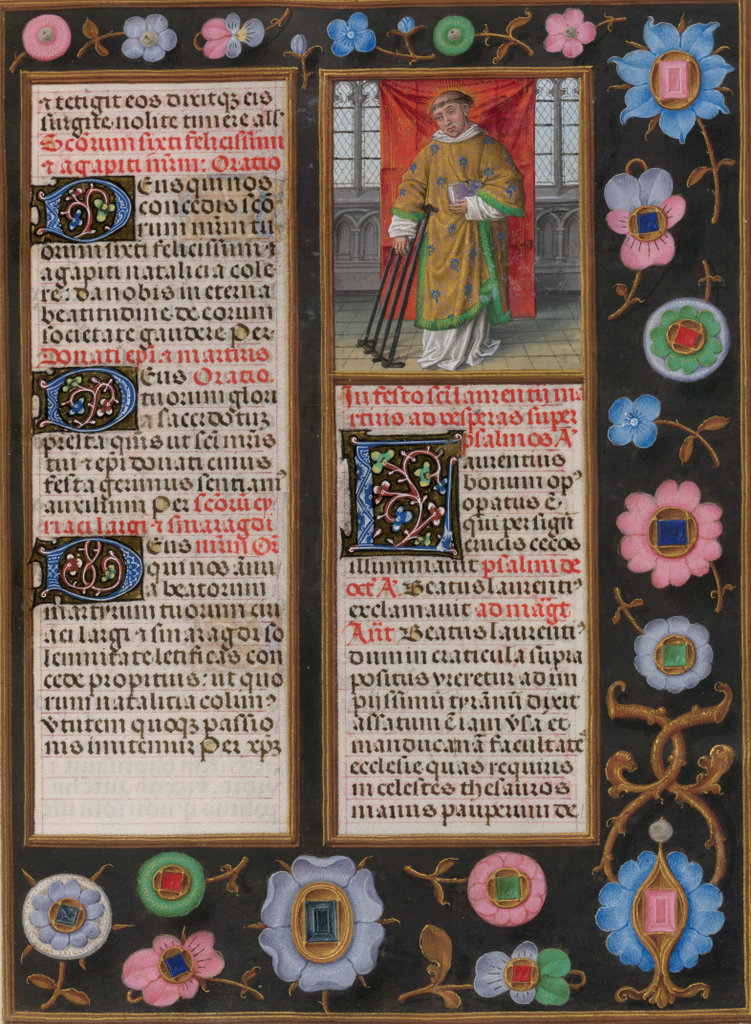 ⁊ tetigit eos dixitqȝ eis
surgite nolite timere all̃
Scorum sixti felicissimi
⁊ agapiti mr̃m: Oratio
Deus qui nos
concedis scõ
rum mr̃m tu
orum sixti felicissimi ⁊
agapiti natalicia cole
re: da nobis in eterna
beatitudine de eorum
societate gaudere Per
Donati ep̃i ⁊ martiris
Deus Oratio.
tuorum glori
a sacerdotuȝ
presta quis ut sc̃i mr̃is
tui ⁊ ep̃i donati cuius
festa gerimus sentiamꝰ
auxilium Per sc̃orũ cy
riaci largi ⁊ smaragdi
Deus mr̃m Or̃
qui nos ãnu
a beatorum
martyrum tuorum ciri
aci largi ⁊ smaragdi so
lemnitate letificas con
cede propitius: ut quo
rum natalitia colimꝰ
virtutem quoqȝ passio
nis imitemur Per xp̃ȝ
In festo sc̃i laurentij ma
rtiris ad vesperas super
psalmos Ã
Laurentius
bonum opꝰ
opatus ẽ
qui per signũ
crucis cecos
illuminauit psalmi de
oct̃ Ã. Beatus laurentiꝰ
exclamauit ad mag̃t
Añt Beatus laurentiꝰ
dum in craticula supra
positus vreretur ad im
pijssimũ tyrãnũ dixit
assatum ẽ iam vsa et
manduca nã facultates
ecclesie quas requiris
in celestes thesauros
manus pauperum de